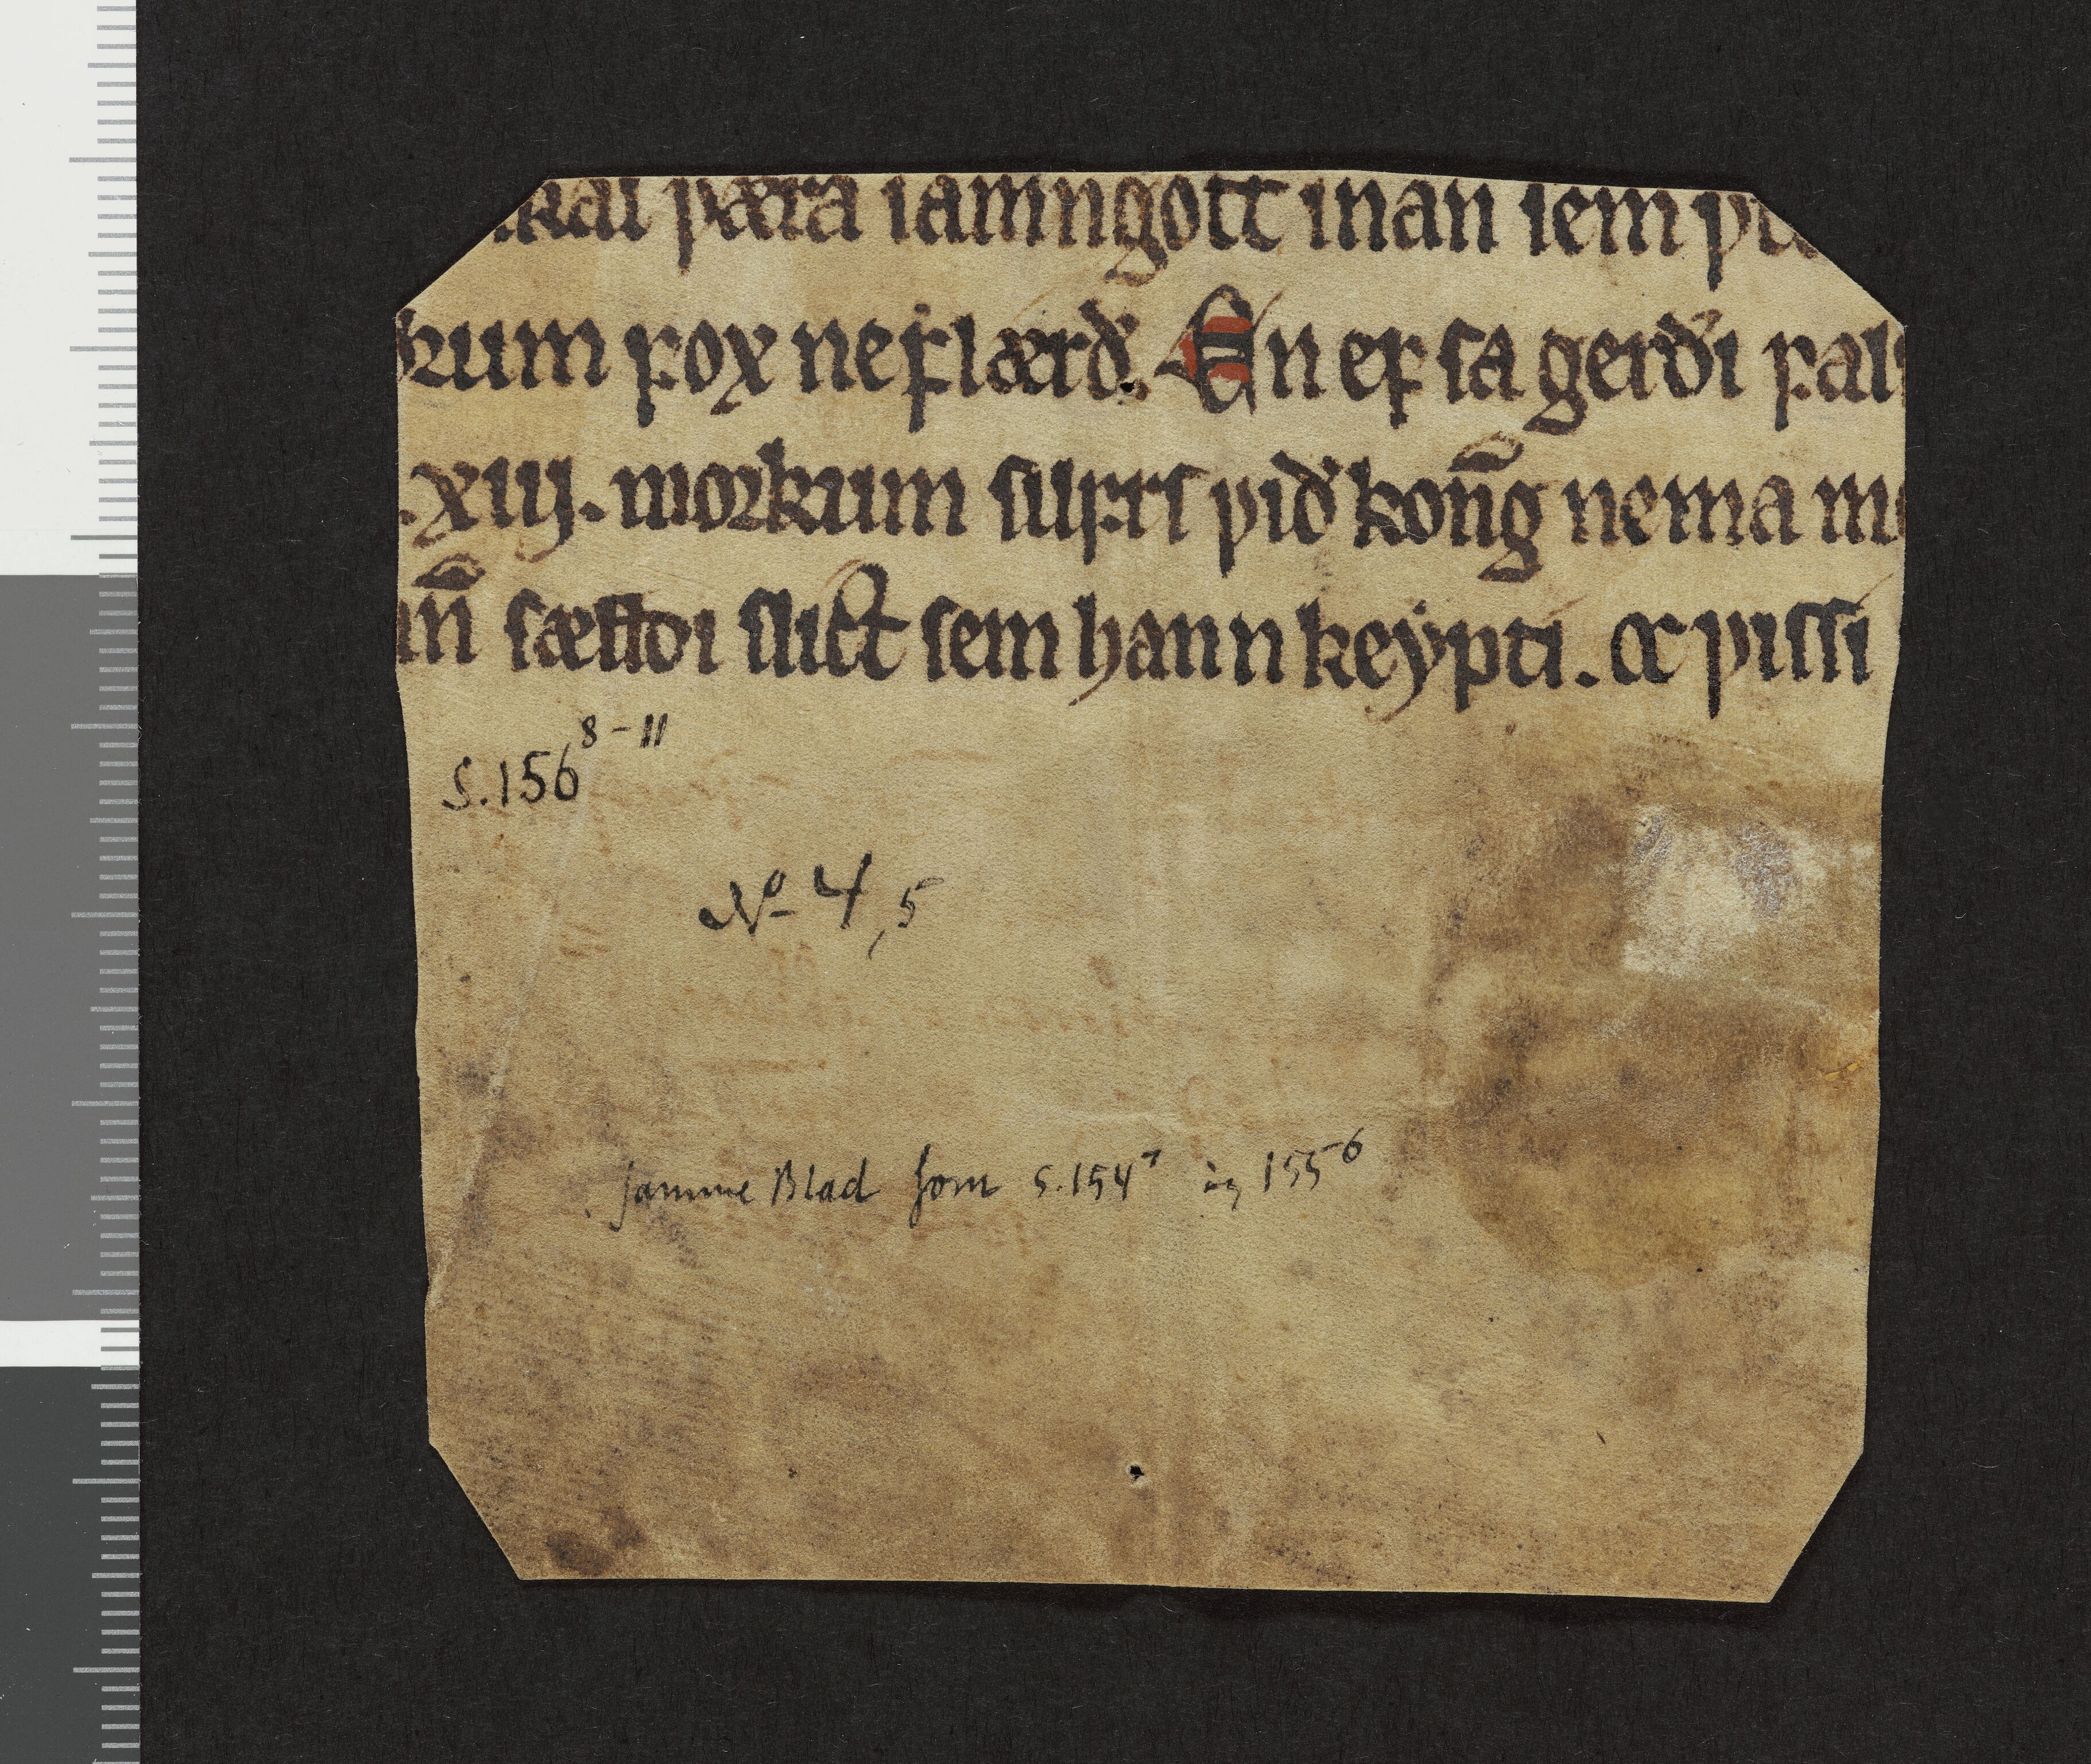 skal væra iamngott innan sem vtan
hum fox ne flærð. En ef sa gerði fals
.xiij. morkum silfrs við kon̄g nema m
an̄ sælldi slict sem hann keypti. oc vissi
S. 156 8-11
No 4,5
samme Blad som S. 154 7 og 155 6